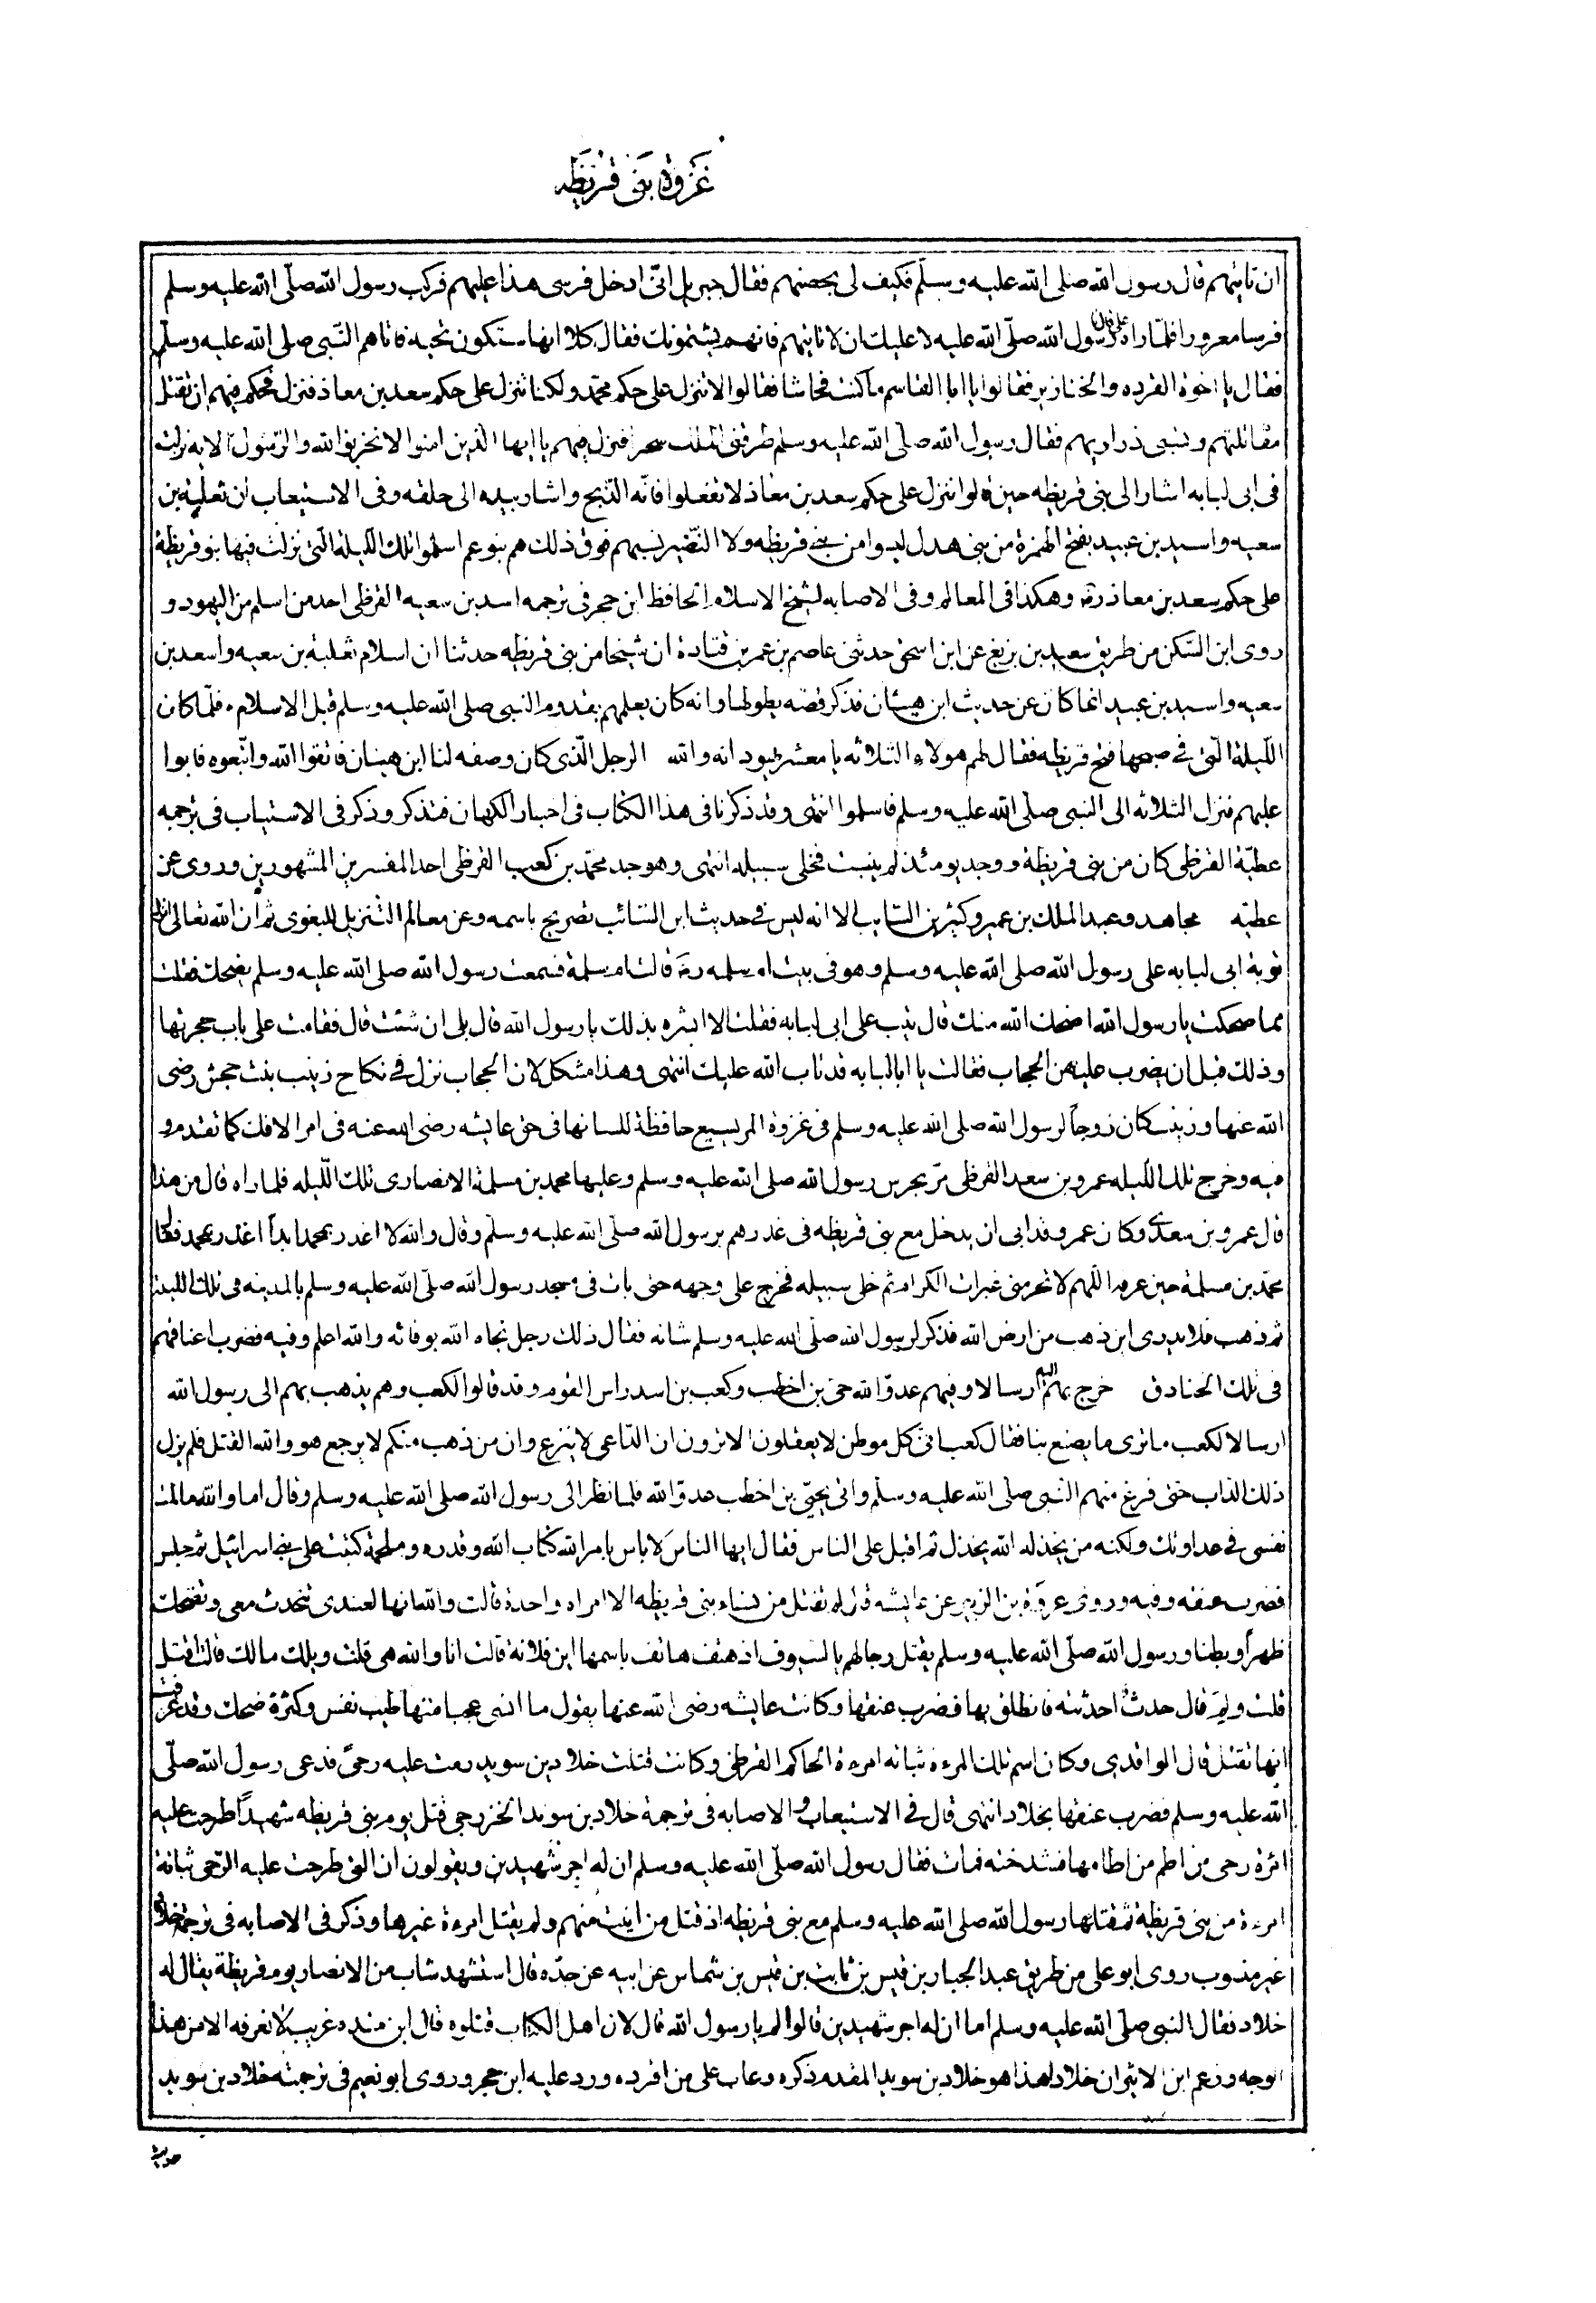 غزوة بنى قريظه
ان تاتيهم قال رسول الله صلى الله عليه وسلم فكيف لى بحصنهم فقال جبريل انى ادخل فرسى هذا عليهم فركب رسول الله صلى الله عليه وسلم
فرسا معرورا فلما راه على قال يا رسول الله صلى الله عليه لا عليك ان لا تاتيهم فانهم يشتمونك فقال كلا انها ستكون تحيه فاتاهم النبى صلى الله عليه وسلم
فقال يا اخوة القرده والخنازير فقالوا يا ابا القاسم ما كنت فحاشا فقالوا لا ننزل على حكم محمد ولكنا ننزل على حكم سعد بن معاذ فنزل فحكم فيهم ان تقتل
مقاتلتهم وتسبى ذراريهم فقال رسول الله صلى الله عليه وسلم طرقنى الملك سحرا فنزل فيهم يا ايها الذين امنوا لا تخونوا الله والرسول الايه نزلت
فى ابى لبابه اشار الى بنى قريظه حين قالوا ننزل على حكم سعد بن معاذ لا تفعلوا فانه الذبح واشار بيده الى حلقه وفى الاستيعاب ان ثعلبة بن
سعيه واسيد بن عبيد بفتح الهمزة من بنى هدل ليسوا من بنى قريظه ولا النضير نسبهم فوق ذلك هم بنو عم اسلموا تلك الليلة التى نزلت فيها بنو قريظة
على حكم سعد بن معاذ رة وهكذا فى المعالم وفى الاصابه لشيخ الاسلام الحافظ ابن حجر فى ترجمه اسد بن سعيه القرظى احد من اسلم من اليهود و
روى ابن السكن من طريق سعيد بن بزيغ عن ابن اسحق حدثنى عاصم بن عمر بن قتادة ان شيخا من بنى قريظه حدثنا ان اسلام ثعلبة بن سعيه واسعد بن
سعيه واسيد بن عبيد انما كان عن حديث ابن هيبان فذكر قصه بطولها وانه كان يعلمهم بقدوم النبى صلى الله عليه وسلم قبل الاسلام فلما كان
الليلة التى فى صبحها فتح قريظه فقال لهم هولاء الثلاثه يا معشر يهود انه والله الرجل الذى كان وصفه لنا ابن هيبان فاتقوا الله واتبعوه فابوا
عليهم فنزل الثلاثه الى النبى صلى الله عليه وسلم فاسلموا انتهى وقد ذكرنا فى هذا الكتاب فى اخبار الكهان فتذكر وذكر فى الاستيعاب فى ترجمه
عطية القرظى كان من بنى قريظة ووجد يومئذ لم ينبت فخلى سبيله انتهى وهو جد محمد بن كعب القرظى احد المفسرين المشهورين وروى عن
عطيه مجاهد وعبد الملك بن عمير وكثير بن السايب الا انه ليس فى حديث ابن السائب تصريح باسمه وعن معالم التنزيل للبغوى ثم ان الله تعالى انزل
توبة ابى لبابه على رسول الله صلى الله عليه وسلم وهو فى بيت ام سلمه رة قالت ام سلمة فسمعت رسول الله صلى الله عليه وسلم يضحك فقلت
مما ضحكت يا رسول الله اضحك الله منك قال تيب على ابى لبابه فقلت الا ابشره بذلك يا رسول الله قال بلى ان شئت قال فقامت على باب حجرتها
وذلك قبل ان يضرب عليهن الحجاب فقالت يا ابا لبابه قد تاب الله عليك انتهى وهذا مشكل لان الحجاب نزل فى نكاح زينب بنت جحش رضى
الله عنها وزينب كان زوجاً لرسول الله صلى الله عليه وسلم فى غزوة المريسيع حافظة للسانها فى حق عايشه رضى الله عنه فى امر الافك كما تقدم و
فيه وخرج تلك الليله عمرو بن سعد القرظى مر بحرس رسول الله صلى الله عليه وسلم وعليها محمد بن مسلمة الانصارى تلك الليله فلما راه قال من هذا
قال عمرو بن سعدى وكان عمرو قد ابى ان يدخل مع بنى قريظه فى غدرهم برسول الله صلى الله عليه وسلم وقال والله لا اغدر بمحمد ابداً اغدر بمحمد فقال
محمد بن مسلمة حين عرفه اللهم لا تحرمنى عثرات الكرام ثم خلى سبيله فخرج على وجهه حتى بات فى مسجد رسول الله صلى الله عليه وسلم بالمدينه فى تلك الليلة
ثم ذهب فلا يدرى اين ذهب من ارض الله فذكر لرسول الله صلى الله عليه وسلم شانه فقال ذلك رجل نجاه الله بوفائه والله اعلم وفيه فضرب اعناقهم
فى تلك الخنادق خرج بهم اليه ارسالا وفيهم عدو الله حيى بن اخطب وكعب بن اسد راس القوم وقد قالوا لكعب وهم يذهب بهم الى رسول الله
ارسالا لكعب ما ترى ما يصنع بنا فقال كعب افى كل موطن لا يعقلون الا ترون ان الداعى لا ينزع وان من ذهب منكم لا يرجع هو والله القتل فلم يزل
ذلك الداب حتى فرغ منهم النبى صلى الله عليه وسلم واتى بحيى بن اخطب عدو الله فلما نظر الى رسول الله صلى الله عليه وسلم وقال اما والله ما لمت
نفسى فى عداوتك ولكنه من يخذله الله يخذل ثم اقبل على الناس فقال ايها الناس لا باس بامر الله كتاب الله وقدره وملحمة كتبت على بنى اسرائيل ثم جلس
فضرب عنقه وفيه وروى عروة بن الزبير عن عايشه قال لم تقتل من نساء بنى قريظه الا امراه واحدة قالت والله انها لعندى تتحدث معى وتضحك
ظهراً وبطنا ورسول الله صلى الله عليه وسلم يقتل رجالهم بالسيوف اذ هتف هاتف باسمها اين فلانة قالت انا والله هى قلت ويلك مالك قالت اقتل
قلت ولم قال حدث احدثته فانطلق بها فضرب عنقها وكانت عايشه رضى الله عنها يقول ما انسى عجبا منها طيب نفس وكثرة ضحك وقد عرفت
انها تقتل قال الواقدى وكان اسم تلك المرءة نباته امرءة الحاكم القرظى وكانت قتلت خلاد بن سويد رمت عليه رحى فدعى رسول الله صلى
الله عليه وسلم فضرب عنقها بخلاد انتهى قال فى الاستيعاب والاصابه فى ترجمة خلاد بن سويد الخزرجى قتل يوم بنى قريظه شهيداً طرحت عليه
امرة رحى من اطم من اطامها فشدخته فمات فقال رسول الله صلى الله عليه وسلم ان له اجر شهيدين ويقولون ان التى طرحت عليه الرحى نباتة
امرءة من بنى قريظة ثم قتلها رسول الله صلى الله عليه وسلم مع بنى قريظه اذ قتل من انبت منهم ولم يقتل امرءة غيرها وذكر فى الاصابه فى ترجمة خلاد
غير منسوب روى ابو على من طريق عبد الجبار بن قيس بن ثابت بن قيس بن شماس عن ابيه عن جده قال استشهد شاب من الانصار يوم قريظة يقال له
خلاد فقال النبى صلى الله عليه وسلم اما ان له اجر شهيدين قالوا لم يا رسول الله قال لان اهل الكتاب قتلوه قال ابن منده غريب لا نعرفه الا من هذا
الوجه وزعم ابن الاثير ان خلاد هذا هو خلاد بن سويد المقدم ذكره وعاب على من افرده ورد عليه ابن حجر وروى ابو نعيم فى ترجمته خلاد بن سويد
حديث